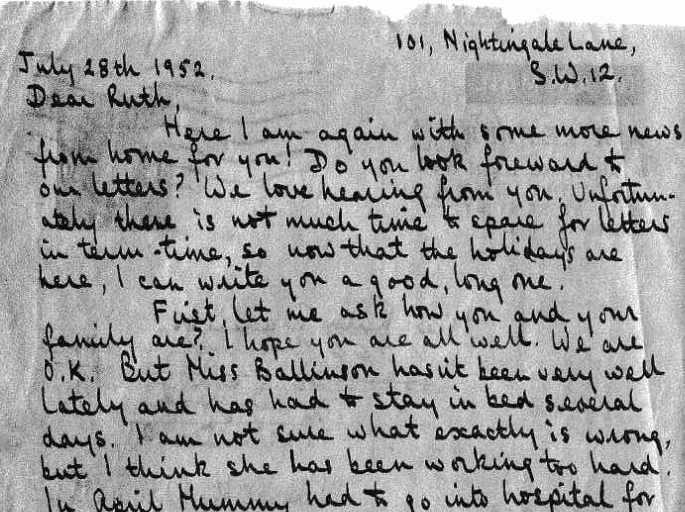 101, Nightingale Lane,
July 28th 1952.
S.W.12.
Dear Ruth,
Here I am again with some more news
from home for you! Do you look foreward to
our letters? We love hearing from you. Unfortun-
ately there is not much time to spare for letters
in term-time, so now that the holidays are
here, I can write you a good, long one.
First, let me ask how you and your
family are? I hope you are all well. We are
O.K. But Miss Ballinson hasn't been very well
lately and has had to stay in bed several
days. I am not sure what exactly is wrong,
but I think she has been working too hard.
In April Mummy had to go into hospital for